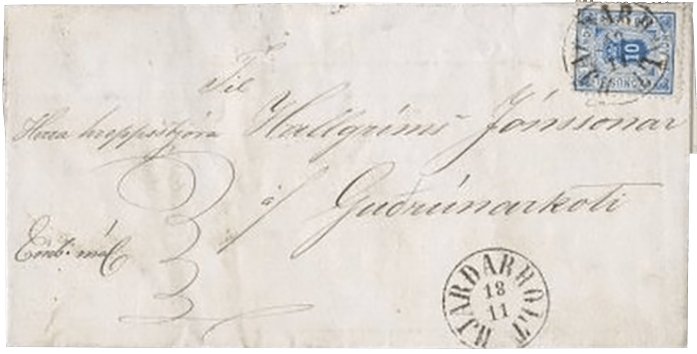 10
Til
Herra hreppstjóra Hallgríms Jónssonar
á Guðrúnarkoti
Emb: mál
HJARDARHOLT
18
11